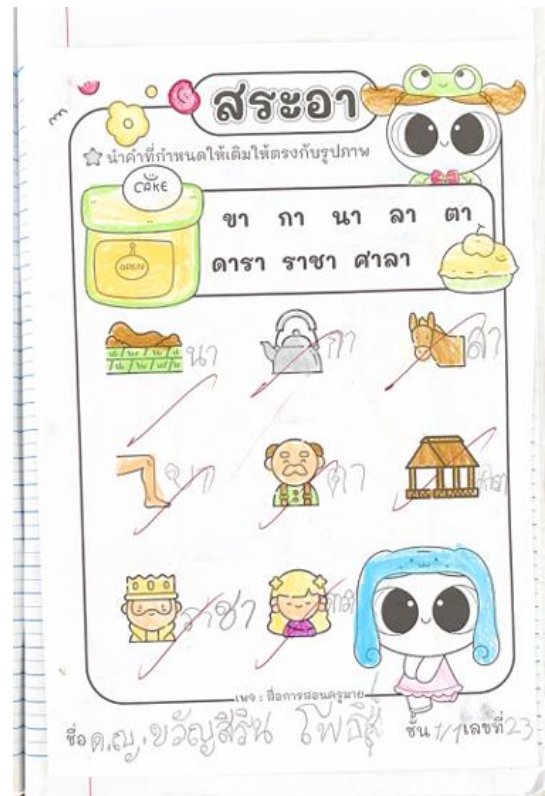 สระอา
นำคำที่กำหนดให้เติมให้ตรงกับรูปภาพ
CAKE
OPEN
ขา กา นา ลา ตา
ดารา ราชา ศาลา
นา กา ลา
ขา ตา ศาลา
ราชา
เพจ : สื่อการสอนครูมาย
ชื่อ ด.ญ. ขวัญสิริน โพธิ์ ชั้น 1/1 เลขที่ 23